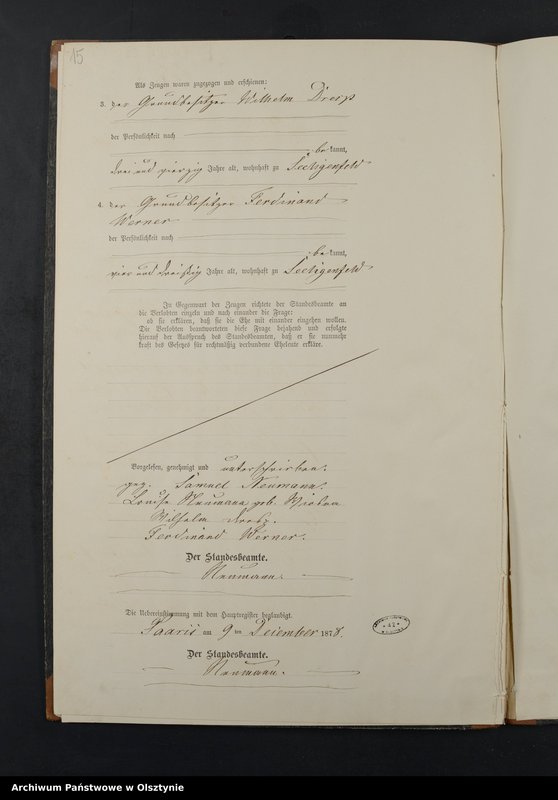 15
Als Zeugen waren zugezogen und erschienen:
3. der Grundbesitzer Wilhelm
der Persönlichkeit nach
be kannt,
drei und vierzig Jahre alt, wohnhaft zu Seeligenfeld
4. der Grundbesitzer Ferdinand
Werner
der Persönlichkeit nach
be kannt,
vier und dreißig Jahre alt, wohnhaft zu Seeligenfeld
In Gegenwart der Zeugen richtete der Standesbeamte an
die Verlobten einzeln und nach einander die Frage:
ob sie erklären, daß sie die Ehe mit einander eingehen wollen.
Die Verlobten beantworteten diese Frage bejahend und erfolgte
hierauf der Ausspruch des Standesbeamten, daß er sie nunmehr
kraft des Gesetzes für rechtmäßig verbundene Eheleute erkläre.
Vorgelesen, genehmigt und unterschrieben.
gez. Samuel Neumann.
Neumann geb.
Wilhelm
Ferdinand Werner.
Der Standesbeamte.
Neumann.
Die Uebereinstimmung mit dem Hauptregister beglaubigt.
am 9 ten Dezember 1878.
Der Standesbeamte.
Neumann.
Archiwum Państwowe w Olsztynie